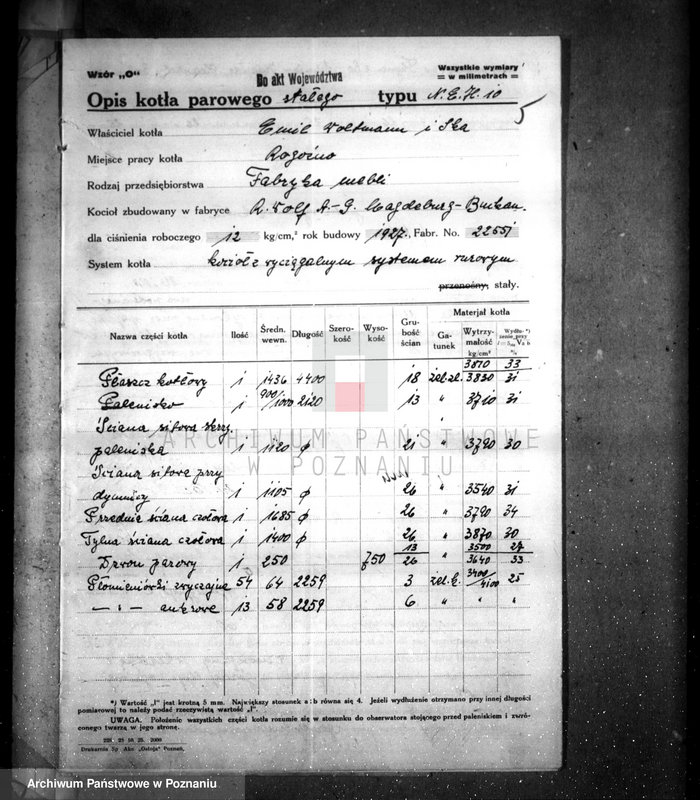 Wzór „O"
Do akt Województwa
Wszystkie wymiary
w milimetrach
Opis kotła parowego stałego typu N.E.H. 10
5
Właściciel kotła Emil Woltmann i Ska
Miejsce pracy kotła Rogoźno
Rodzaj przedsiębiorstwa Fabryka mebli
Kocioł zbudowany w fabryce R. Wolf A-G. Magdeburg-Buckau.
dla ciśnienia roboczego 12 kg/cm,² rok budowy 1927, Fabr. No. 22551
System kotła kocioł z wyciągalnym systemem rurowym
przenośny, stały.
Nazwa części kotła Ilość Średn. wewn. Długość Szerokość Wysokość Grubość ścian Materjał kotła
Gatunek Wytrzymałość kg/cm² Wydłużenie przy *)
%
3810 33
Płaszcz kotłowy 1 1436 4400 18 żel.zl. 3830 31
Palenisko 1 900/1000 2120 13 " 3710 31
Ściana sitowa
paleniska 1 1120 φ 21 " 3790 30
Ściana sitowa przy
dymnicy 1 1105 φ 26 " 3540 31
Przednia ściana czołowa 1 1685 φ 26 " 3790 34
Tylna ściana czołowa 1 1400 φ 26 " 3870 30
13 3500 27
Dzwon parowy 1 250 750 26 " 3640 33
Płomieniówki zwyczajne 54 64 2259 3 żel.k. 3400/4100 25
— " — ankrowe 13 58 2259 6 " " "
ARCHIWUM PAŃSTWOWE
W POZNANIU
*) Wartość „l" jest krotną 5 mm. Największy stosunek a:b równa się 4. Jeżeli wydłużenie otrzymano przy innej długości
pomiarowej to należy podać rzeczywistą wartość „l".
UWAGA. Położenie wszystkich części kotła rozumie się w stosunku do obserwatora stojącego przed paleniskiem i zwróconego twarzą w jego stronę.
228. 23 10. 25. 2000
Drukarnia Sp Akc „Ostoja" Poznań,
Archiwum Państwowe w Poznaniu